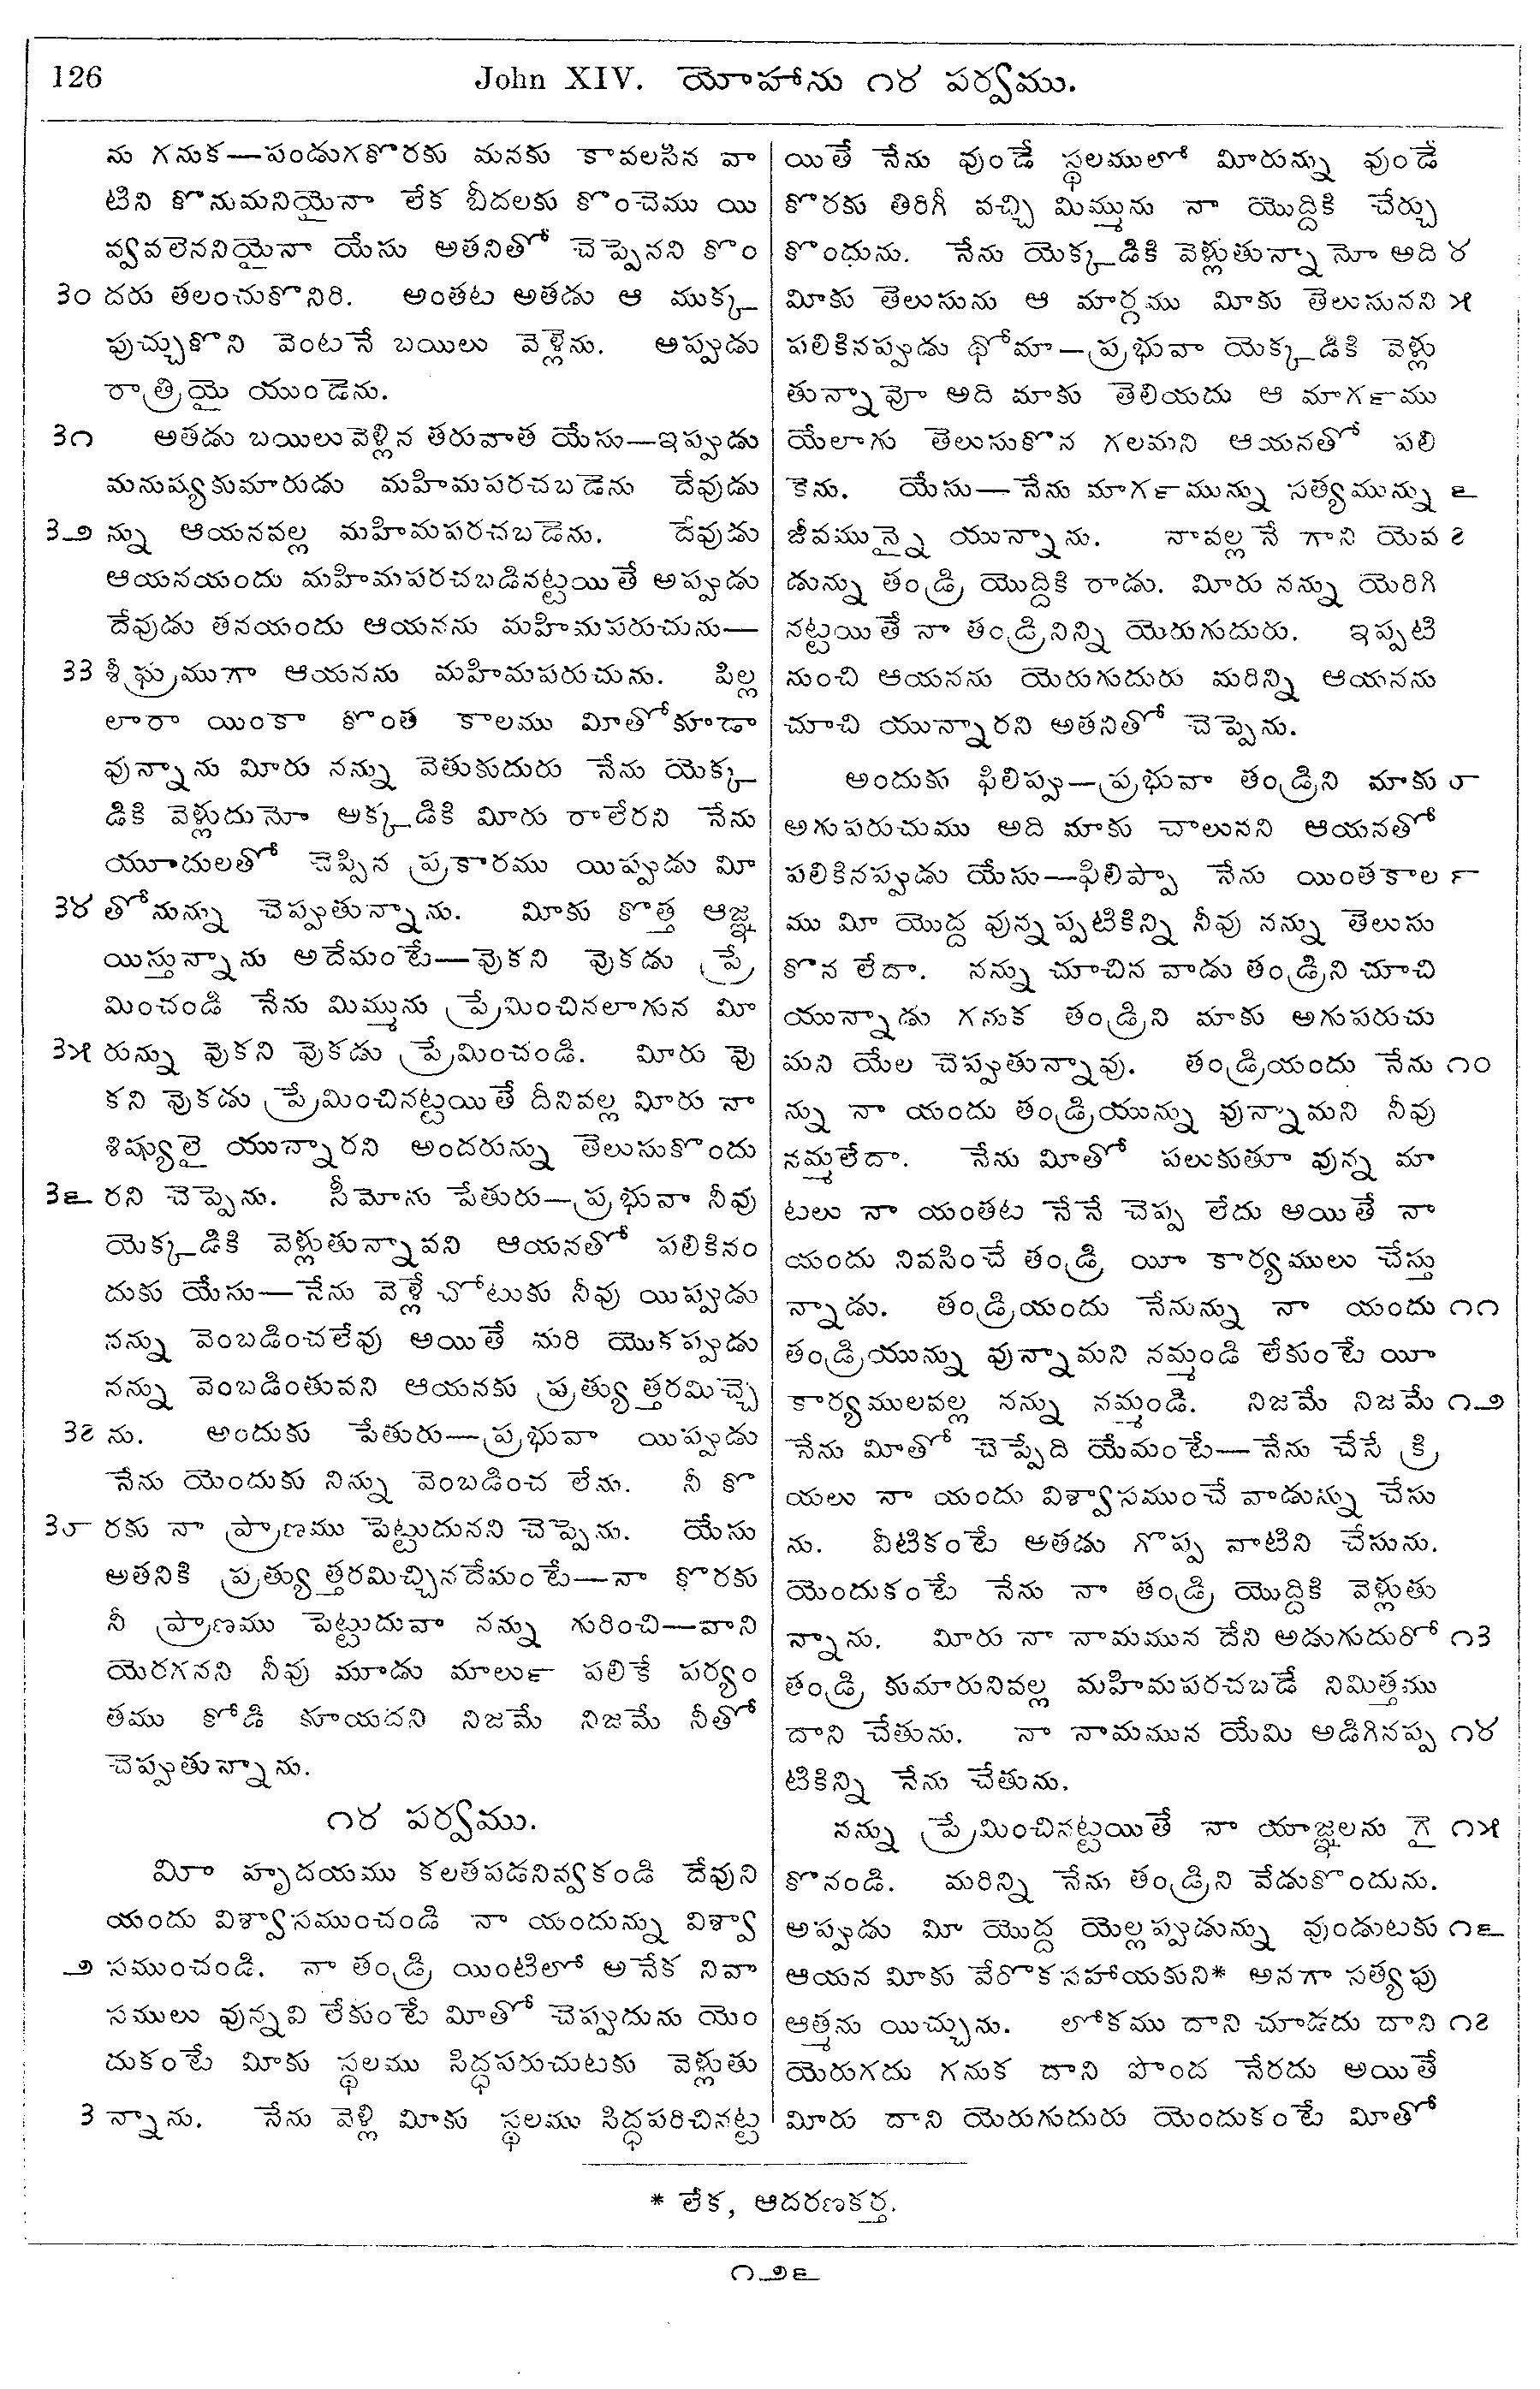 126 John XIV. యోహాను ౧౪ పర్వము.
ను గనుక—పండుగకొరకు మనకు కావలసిన వా
టిని కొనుమనియైనా లేక బీదలకు కొంచెము యి
వ్వవలెననియైనా యేసు అతనితో చెప్పెనని కొం
౩౦ దరు తలంచుకొనిరి. అంతట అతడు ఆ ముక్క
పుచ్చుకొని వెంటనే బయిలు వెళ్లెను. అప్పుడు
రాత్రియై యుండెను.
౩౧ అతడు బయిలువెళ్లిన తరువాత యేసు—ఇప్పుడు
మనుష్యకుమారుడు మహిమపరచబడెను దేవుడు
౩౨ న్ను ఆయనవల్ల మహిమపరచబడెను. దేవుడు
ఆయనయందు మహిమపరచబడినట్టయితే అప్పుడు
దేవుడు తనయందు ఆయనను మహిమపరుచును—
౩౩ శీఘ్రముగా ఆయనను మహిమపరుచును. పిల్ల
లారా యింకా కొంత కాలము మీతోకూడా
వున్నాను మీరు నన్ను వెతుకుదురు నేను యెక్క
డికి వెళ్లుదునో అక్కడికి మీరు రాలేరని నేను
యూదులతో చెప్పిన ప్రకారము యిప్పుడు మీ
౩౪ తోనున్ను చెప్పుతున్నాను. మీకు కొత్త ఆజ్ఞ
యిస్తున్నాను అదేమంటే—వొకని వొకడు ప్రే
మించండి నేను మిమ్మును ప్రేమించినలాగున మీ
౩౫ రున్ను వొకని వొకడు ప్రేమించండి. మీరు వొ
కని వొకడు ప్రేమించినట్టయితే దీనివల్ల మీరు నా
శిష్యులై యున్నారని అందరున్ను తెలుసుకొందు
౩౬ రని చెప్పెను. సీమోను పేతురు—ప్రభువా నీవు
యెక్కడికి వెళ్లుతున్నావని ఆయనతో పలికినం
దుకు యేసు—నేను వెళ్లే చోటుకు నీవు యిప్పుడు
నన్ను వెంబడించలేవు అయితే మరి యొకప్పుడు
నన్ను వెంబడింతువని ఆయనకు ప్రత్యుత్తరమిచ్చె
౩౭ ను. అందుకు పేతురు—ప్రభువా యిప్పుడు
నేను యెందుకు నిన్ను వెంబడించ లేను. నీ కొ
౩౮ రకు నా ప్రాణము పెట్టుదునని చెప్పెను. యేసు
అతనికి ప్రత్యుత్తరమిచ్చినదేమంటే—నా కొరకు
నీ ప్రాణము పెట్టుదువా నన్ను గురించి—వాని
యెరగనని నీవు మూడు మాలు౯ పలికే పర్యం
తము కోడి కూయదని నిజమే నిజమే నీతో
చెప్పుతున్నాను.
౧౪ పర్వము.
మీ హృదయము కలతపడనివ్వకండి దేవుని
యందు విశ్వాసముంచండి నా యందున్ను విశ్వా
౨ సముంచండి. నా తండ్రి యింటిలో అనేక నివా
సములు వున్నవి లేకుంటే మీతో చెప్పుదును యెం
దుకంటే మీకు స్థలము సిద్ధపరుచుటకు వెళ్లుతు
౩ న్నాను. నేను వెళ్లి మీకు స్థలము సిద్ధపరిచినట్ట
యితే నేను వుండే స్థలములో మీరున్ను వుండే
కొరకు తిరిగీ వచ్చి మిమ్మును నా యొద్దికి చేర్చు
కొంధును. నేను యెక్కడికి వెళ్లుతున్నానో అది ౪
మీకు తెలుసును ఆ మార్గము మీకు తెలుసునని ౫
పలికినప్పుడు థోమా—ప్రభువా యెక్కడికి వెళ్లు
తున్నావో అది మాకు తెలియదు ఆ మాగ౯ము
యేలాగు తెలుసుకొన గలమని ఆయనతో పలి
కెను. యేసు—నేను మాగ౯మున్ను సత్యమున్ను ౬
జీవమున్నై యున్నాను. నావల్లనే గాని యెవ ౭
డున్ను తండ్రి యొద్దికి రాడు. మీరు నన్ను యెరిగి
నట్టయితే నా తండ్రినిన్ని యెరుగుదురు. ఇప్పటి
నుంచి ఆయనను యెరుగుదురు మరిన్ని ఆయనను
చూచి యున్నారని అతనితో చెప్పెను.
అందుకు ఫిలిప్పు—ప్రభువా తండ్రిని మాకు ౮
అగుపరుచుము అది మాకు చాలునని ఆయనతో
పలికినప్పుడు యేసు—ఫిలిప్పా నేను యింతకాల ౯
ము మీ యొద్ద వున్నప్పటికిన్ని నీవు నన్ను తెలుసు
కొన లేదా. నన్ను చూచిన వాడు తండ్రిని చూచి
యున్నాడు గనుక తండ్రిని మాకు అగుపరుచు
మని యేల చెప్పుతున్నావు. తండ్రియందు నేను ౧౦
న్ను నా యందు తండ్రియున్ను వున్నామని నీవు
నమ్మలేదా. నేను మీతో పలుకుతూ వున్న మా
టలు నా యంతట నేనే చెప్ప లేదు అయితే నా
యందు నివసించే తండ్రి యీ కార్యములు చేస్తు
న్నాడు. తండ్రియందు నేనున్ను నా యందు ౧౧
తండ్రియున్ను వున్నామని నమ్మండి లేకుంటే యీ
కార్యములవల్ల నన్ను నమ్మండి. నిజమే నిజమే ౧౨
నేను మీతో చెప్పేది యేమంటే—నేను చేసే క్రి
యలు నా యందు విశ్వాసముంచే వాడున్ను చేసు
ను. వీటికంటే అతడు గొప్ప వాటిని చేసును.
యెందుకంటే నేను నా తండ్రి యొద్దికి వెళ్లుతు
న్నాను. మీరు నా నామమున దేని అడుగుదురో ౧౩
తండ్రి కుమారునివల్ల మహిమపరచబడే నిమిత్తము
దాని చేతును. నా నామమున యేమి అడిగినప్ప ౧౪
టికిన్ని నేను చేతును.
నన్ను ప్రేమించినట్టయితే నా యాజ్ఞలను గై ౧౫
కొనండి. మరిన్ని నేను తండ్రిని వేడుకొందును.
అప్పుడు మీ యొద్ద యెల్లప్పుడున్ను వుండుటకు ౧౬
ఆయన మీకు వేరొకసహాయకుని* అనగా సత్యపు
ఆత్మను యిచ్చును. లోకము దాని చూడదు దాని ౧౭
యెరుగదు గనుక దాని పొంద నేరదు అయితే
మీరు దాని యెరుగుదురు యెందుకంటే మీతో
* లేక, ఆదరణకర్త.
౧౨౬